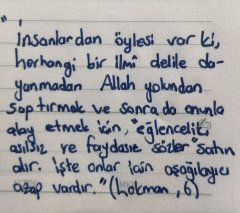 "
İnsanlardan öylesi var ki,
herhangi bir ilmî delile da-
yanmadan Allah yolundan
saptırmak ve sonra da onunla
alay etmek için, "eğlencelik,
asılsız ve faydasız sözler" satın
alır. İşte onlar için aşağılayıcı
azap vardır." (Lokman, 6)